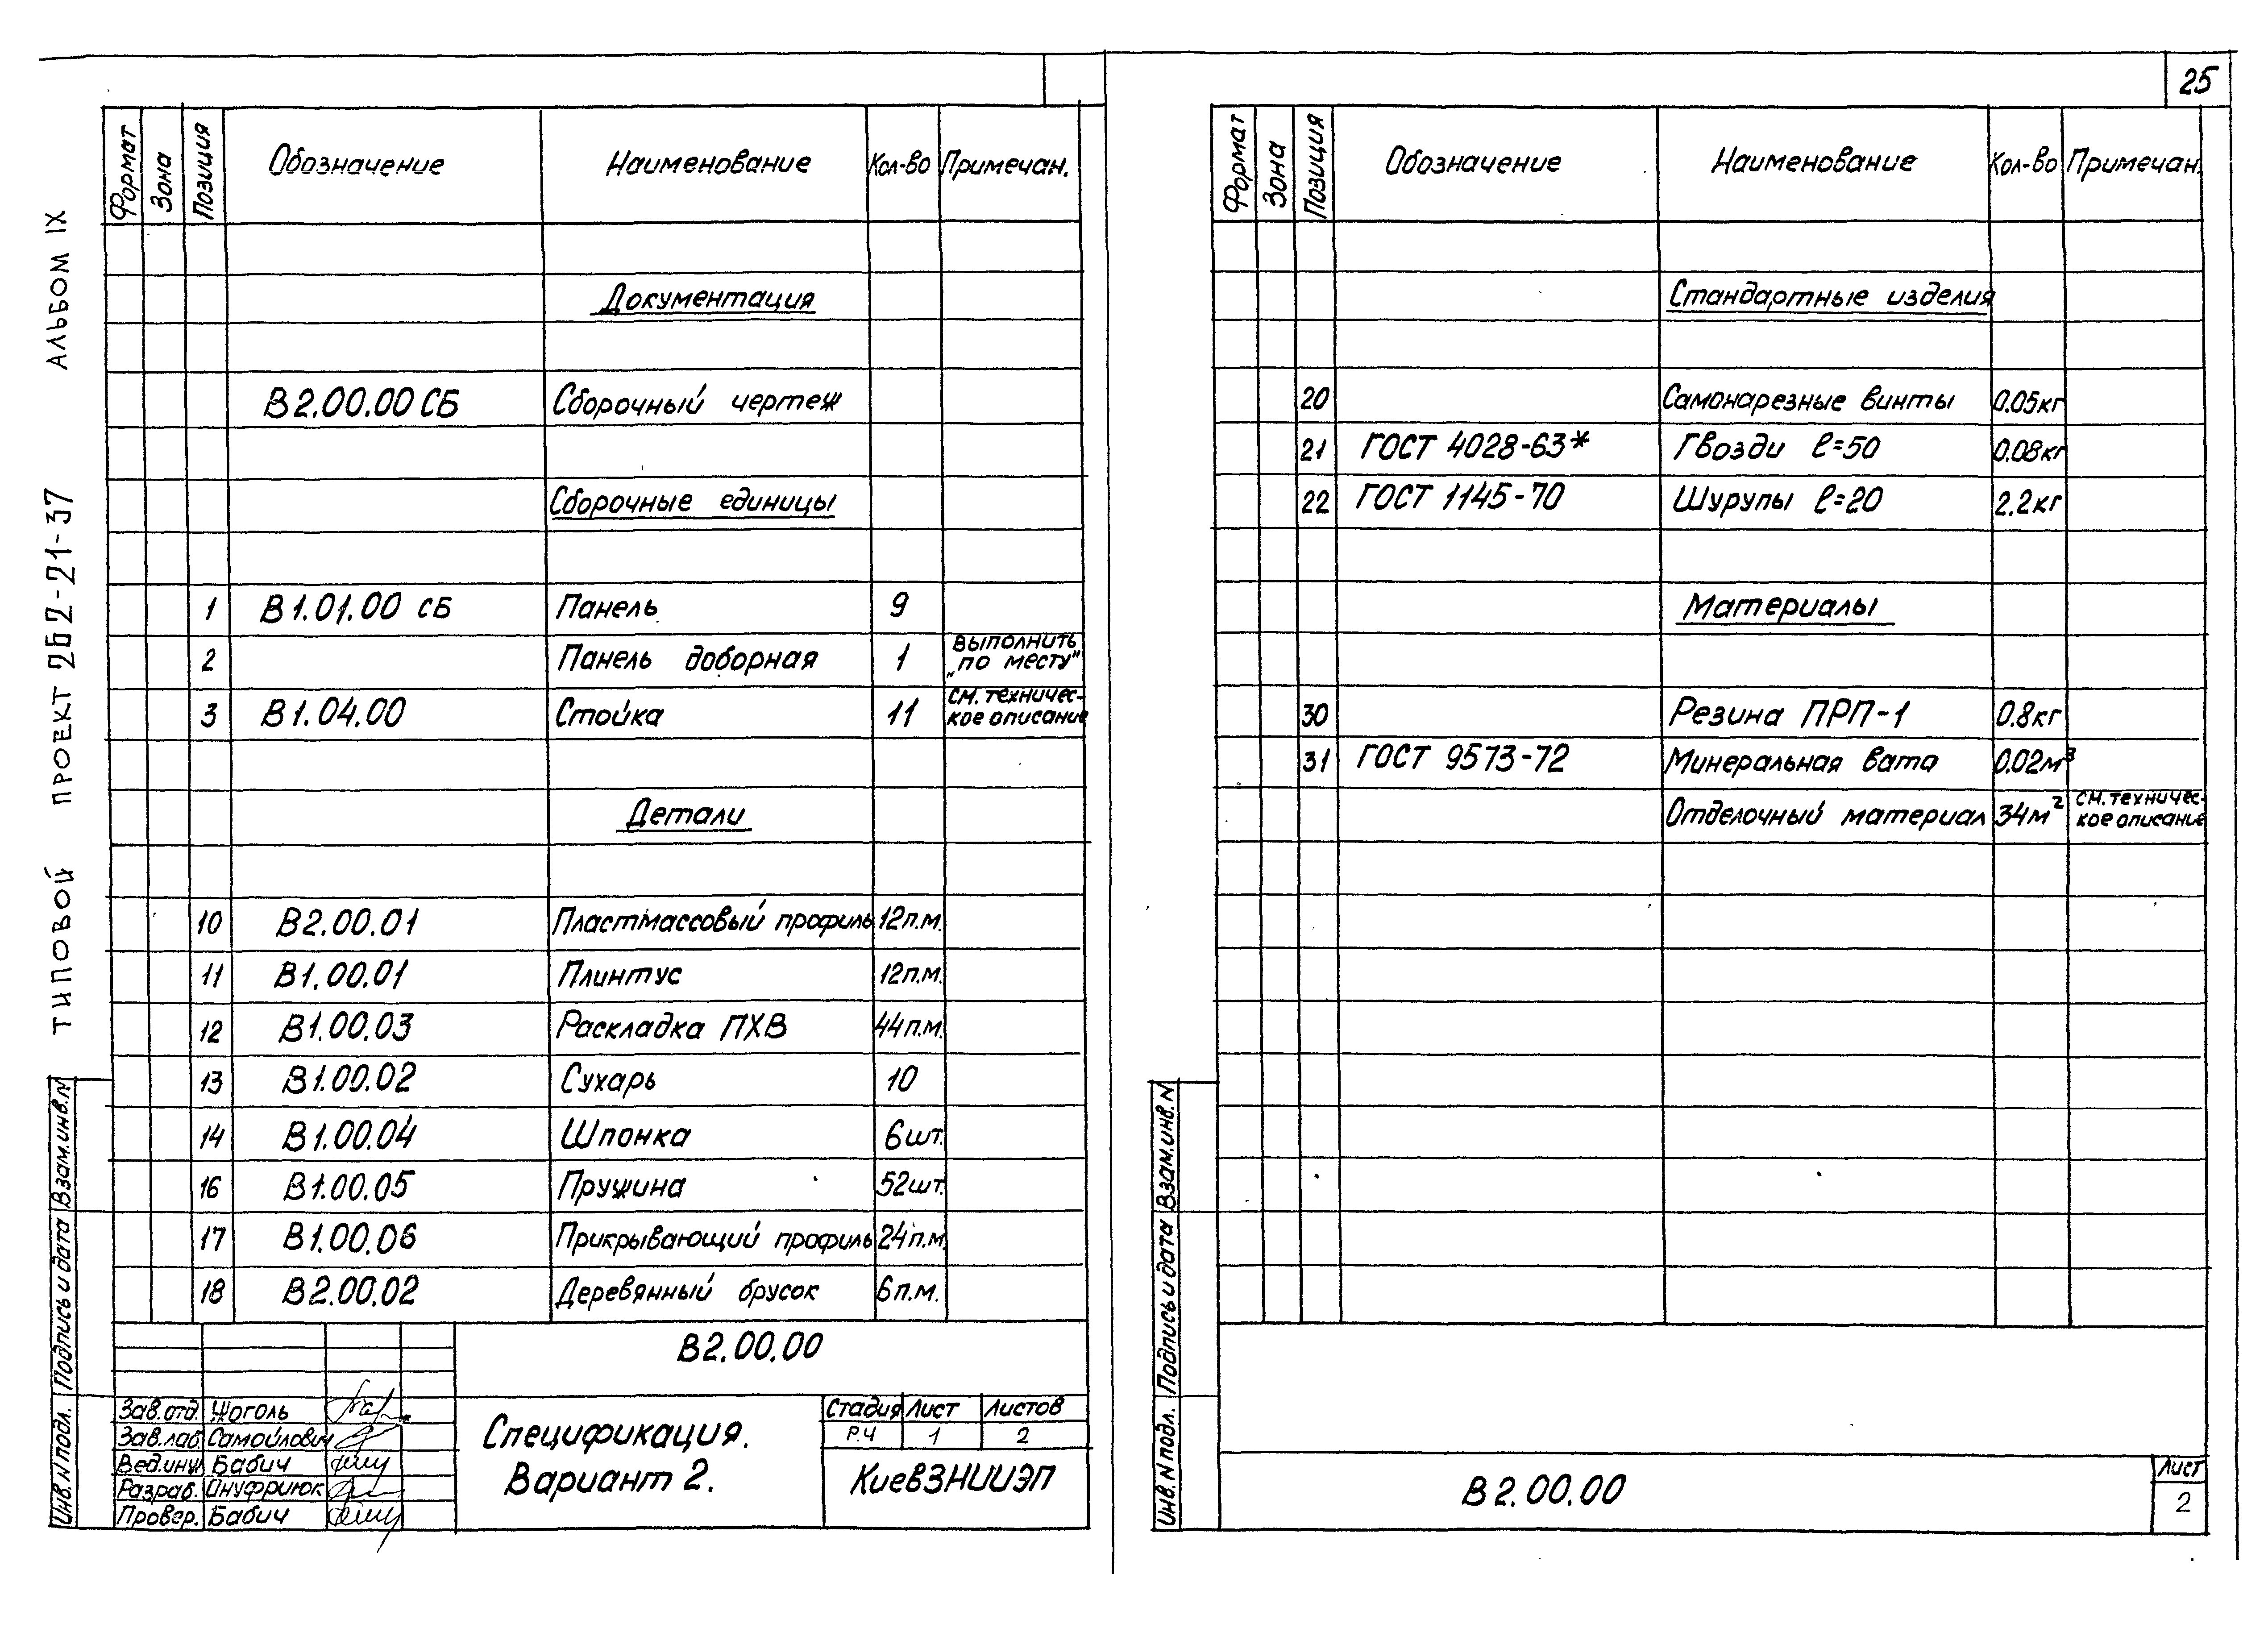 25
ТИПОВОЙ ПРОЕКТ 262-21-37 АЛЬБОМ IX
Формат Зона Позиция Обозначение Наименование Кол-во Примечан.
Документация
В2.00.00 СБ Сборочный чертеж
Сборочные единицы
1 В1.01.00 СБ Панель 9
2 Панель доборная 1 выполнить „по месту"
3 В1.04.00 Стойка 11 см. техничес-кое описание
Детали
10 В2.00.01 Пластмассовый профиль 12п.м.
11 В1.00.01 Плинтус 12п.м.
12 В1.00.03 Раскладка ПХВ 44п.м.
13 В1.00.02 Сухарь 10
14 В1.00.04 Шпонка 6шт.
16 В1.00.05 Пружина 52шт.
17 В1.00.06 Прикрывающий профиль 24п.м.
18 В2.00.02 Деревянный брусок 6п.м.
В2.00.00
Зав.отд. Жоголь
Зав.лаб. Самойлович
Вед.инж Бабич
Разраб. Онуфриюк
Провер. Бабич
Спецификация.
Вариант 2.
Стадия Лист Листов
Р.Ч 1 2
КиевЗНИИЭП
Инв.N подл. Подпись и дата Взам.инв.N
Формат Зона Позиция Обозначение Наименование Кол-во Примечан.
Стандартные изделия
20 Самонарезные винты 0.05кг
21 ГОСТ 4028-63* Гвозди ℓ=50 0.08кг
22 ГОСТ 1145-70 Шурупы ℓ=20 2.2кг
Материалы
30 Резина ПРП-1 0.8кг
31 ГОСТ 9573-72 Минеральная вата 0.02м³
Отделочный материал 34м² см. техничес-кое описание
Инв.N подл. Подпись и дата Взам.инв.N
В2.00.00
Лист
2